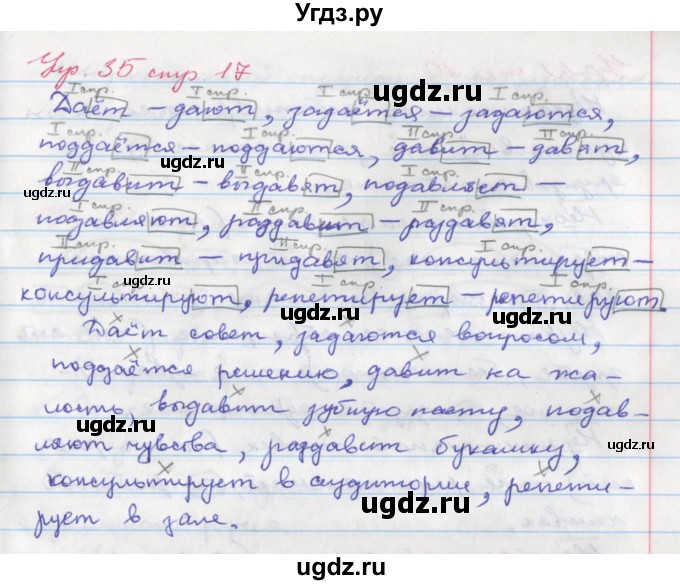 Угдз.ру
Упр. 35 стр. 17
I спр. I спр. I спр. I спр.
Даёт – дают, задаётся – задаются,
I спр. I спр. II спр. II спр.
поддаётся – поддаются, давит – давят,
II спр. II спр. I спр.
выдавит – выдавят, подавляет –
I спр. II спр. II спр.
подавляют, раздавит – раздавят,
II спр. II спр. I спр.
придавит – придавят, консультирует –
I спр. I спр. I спр.
консультируют, репетирует – репетируют.
Даёт совет, задаются вопросом,
поддаётся решению, давит на жа-
лость, выдавит зубную пасту, подав-
ляют чувства, раздавит букашку,
консультирует в аудитории, репети-
рует в зале.
ugdz.ru
ugdz.ru
ugdz.ru
ugdz.ru
ugdz.ru
ugdz.ru
ugdz.ru
ugdz.ru
ugdz.ru
ugdz.ru
ugdz.ru
ugdz.ru
ugdz.ru